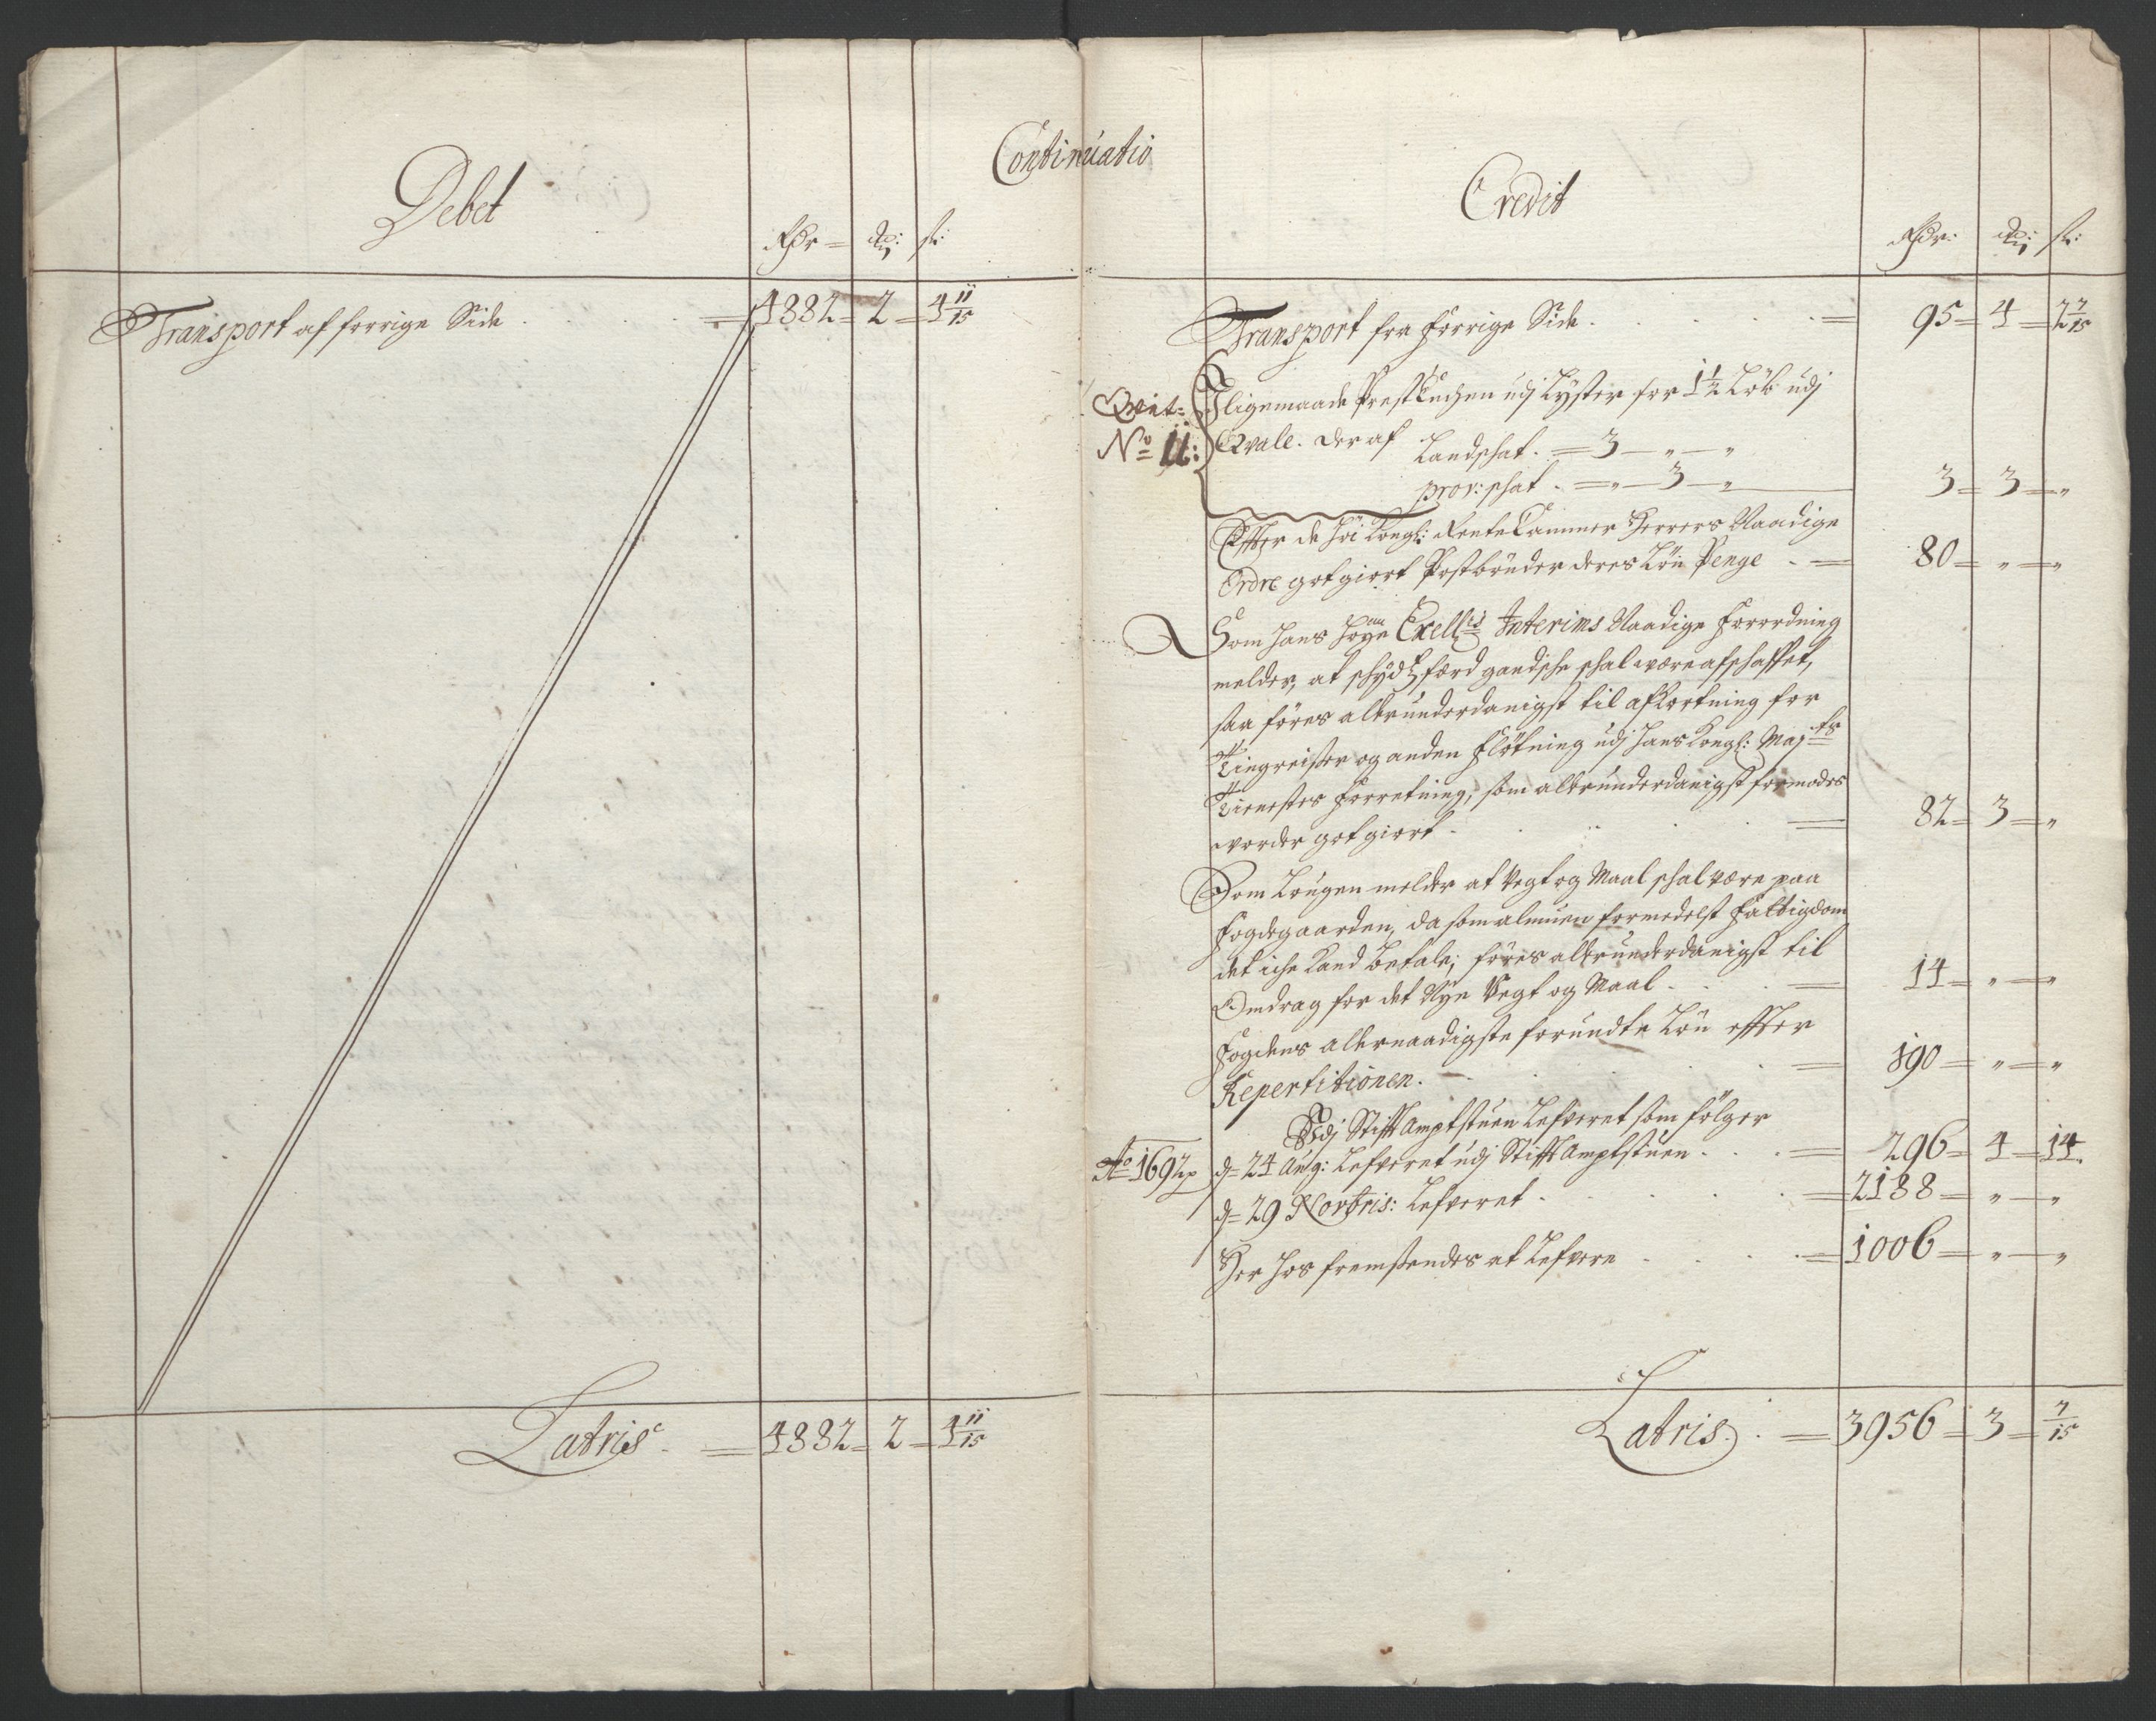 Continuatio
Debet
Rdr = ort: s:
Transport af forrige Side . . . . . = 4882 = 2 = 4 11/15
Latris = 4882 = 2 = 4 11/15
Credit
Rdr: ort: s:
Transport fra forrige Side . . . . = 95 = 4 = 2 7/15
Qvit:
No 11:
Iligemaade Prest Enchen udj Lyster for 1 1/2 Løb udj
Qvale. Der af Landschat. = 3 — „ — „
prov: schat. = „ — 3 — „ 3 = 3 = „
Effter de høi Kongl: Rente Cammer Herrers Naadige
Ordre gotgiort Postbønder deres Løn Penge . = 80 = „ = „
Som hans høye Exell:s Interims Naadige forordning
melder, at schydtzferd gandsche schal være afschaffet,
saa føres allerunderdanigst til afkortning for
Tingreiser og anden fløtning udj hans Kongl: Maj:ts
Tienestes forretning, som allerunderdanigst formodes
vorder gotgiort . . . . = 82 = 3 = „
Som Lougen melder at Vegt og Maal schal være paa
fogdegaarden, da som almuen formedelst fattigdom
det iche kand betale; føres allerunderdanigst til
Omdrag for det Nye Vegt og Maal . . . = 14 = „ = „
Fogdens allernaadigste forundte Løn effter
Repertitionen. . . . . = 190 = „ = „
Udj Stifft Amptstuen Lefveret som følger
Ao 1692
d= 24 Aug: Lefveret udj Stifft Amptstuen . . . = 296 = 4 = 14.
d= 29 Novbris: Lefveret . . . . = 2188 = „ = „
Her hos fremsendes at Lefvere . . . . = 1006 = „ = „
Latris . = 3956 = 3 = 7/15